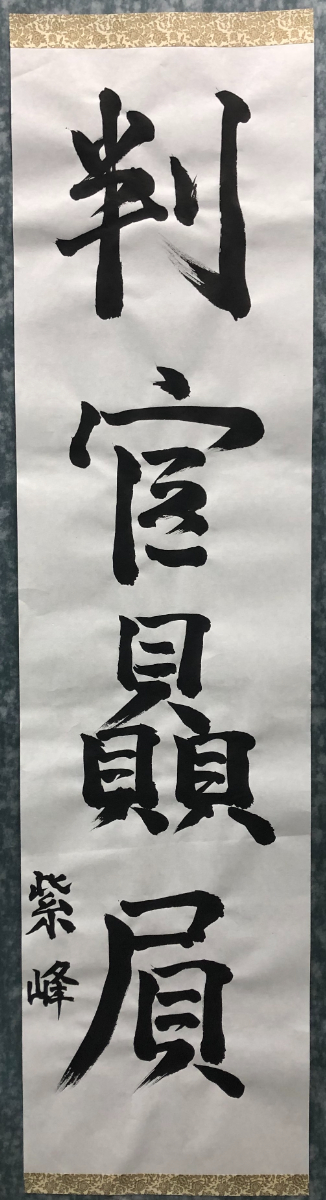 判官贔屓
紫峰